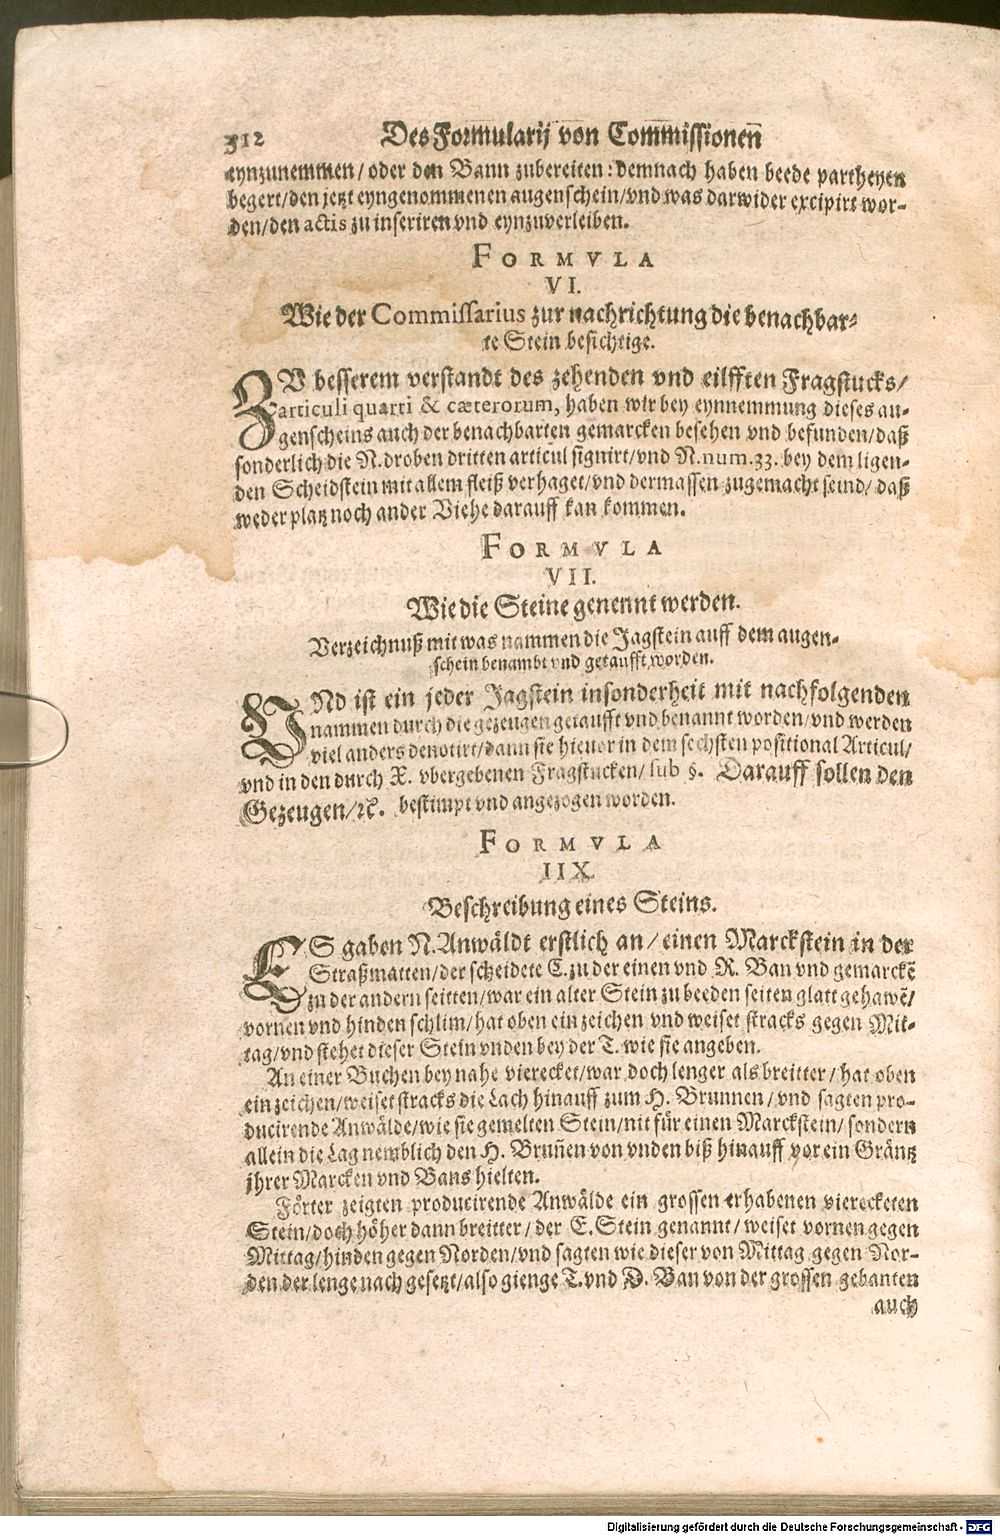 312 Des Formularij von Com̄issionen̄
eynzunemmen/oder den Bann zubereiten: demnach haben beede partheyen
begert/den jetzt eyngenommenen augenschein/vnd was darwider excipirt wor-
den/den actis zu inseriren vnd eynzuverleiben.
FORMVLA
VI.
Wie der Commissarius zur nachrichtung die benachbar-
te Stein besichtige.
ZV besserem verstandt des zehenden vnd eilfften Fragstucks/
articuli quarti & cæterorum, haben wir bey eynnemmung dieses au-
genscheins auch der benachbarten gemarcken besehen vnd befunden/daß
sonderlich die N. droben dritten articul signirt/vnd N. num. 33. bey dem ligen-
den Scheidstein mit allem fleiß verhaget/vnd dermassen zugemacht seind/daß
weder platz noch ander Viehe darauff kan kommen.
FORMVLA
VII.
Wie die Steine genennt werden.
Verzeichnuß mit was nammen die Jagstein auff dem augen-
schein benambt vnd getaufft worden.
VNd ist ein jeder Jagstein insonderheit mit nachfolgenden
nammen durch die gezeugen getaufft vnd benannt worden/vnd werden
viel anders denotirt/dann sie hieuor in dem sechsten positional Articul/
vnd in den durch X. vbergebenen Fragstucken/sub §. Darauff sollen den
Gezeugen/ꝛc. bestimpt vnd angezogen worden.
FORMVLA
IIX.
Beschreibung eines Steins.
ES gaben N. Anwäldt erstlich an/einen Marckstein in der
Straßmatten/der scheidete C. zu der einen vnd R. Ban vnd gemarckē
zu der andern seitten/war ein alter Stein zu beeden seiten glatt gehawē/
vornen vnd hinden schlim/hat oben ein zeichen vnd weiset stracks gegen Mit-
tag/vnd stehet dieser Stein vnden bey der T. wie sie angeben.
An einer Buchen bey nahe vierecket/war doch lenger als breitter/hat oben
ein zeichen/weiset stracks die Lach hinauff zum H. Brunnen/vnd sagten pro-
ducirende Anwälde/wie sie gemelten Stein/nit für einen Marckstein/sondern
allein die Lag nemblich den H. Brun̄en von vnden biß hinauff vor ein Gräntz
jhrer Marcken vnd Bans hielten.
Förter zeigten producirende Anwälde ein grossen erhabenen vierecketen
Stein/doch höher dann breitter/der E. Stein genannt/weiset vornen gegen
Mittag/hinden gegen Norden/vnd sagten wie dieser von Mittag gegen Nor-
den der lenge nach gesetzt/also gienge T. vnd D. Ban von der grossen gebanten
auch
Digitalisierung gefördert durch die Deutsche Forschungsgemeinschaft - DFG